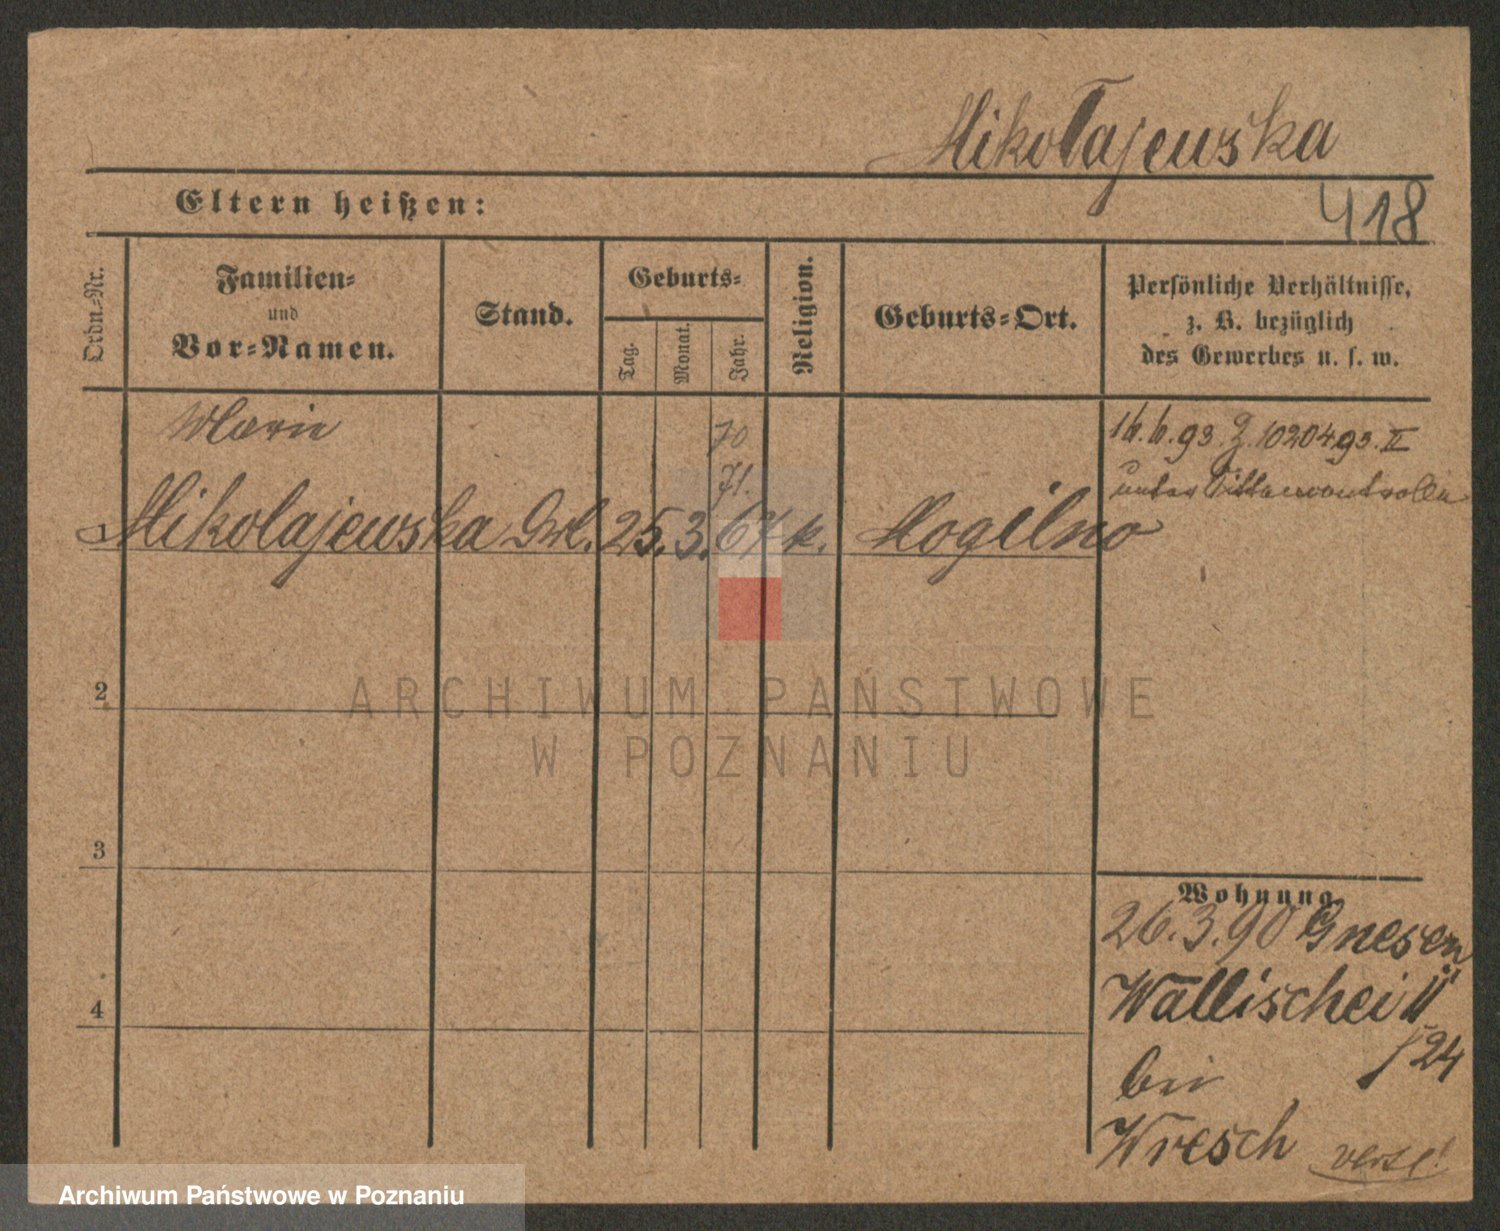 Mikołajewska
Eltern heißen:
418
Ordn.-Nr.
Familien-
und
Vor-Namen.
Stand.
Geburts-
Tag.
Monat.
Jahr.
Religion.
Geburts-Ort.
Persönliche Verhältnisse,
z. B. bezüglich
des Gewerbes u. s. w.
Marie
70
71.
16.6.93. 10204.93. II
unter Sittencontrolle
Mikolajewska 25. 3. 67 k. Mogilno
2
3
4
ARCHIWUM PAŃSTWOWE
W POZNANIU
Wohnung.
26.3.90 Gnesen
Wallischei 11
24
bei
Wresch
Archiwum Państwowe w Poznaniu